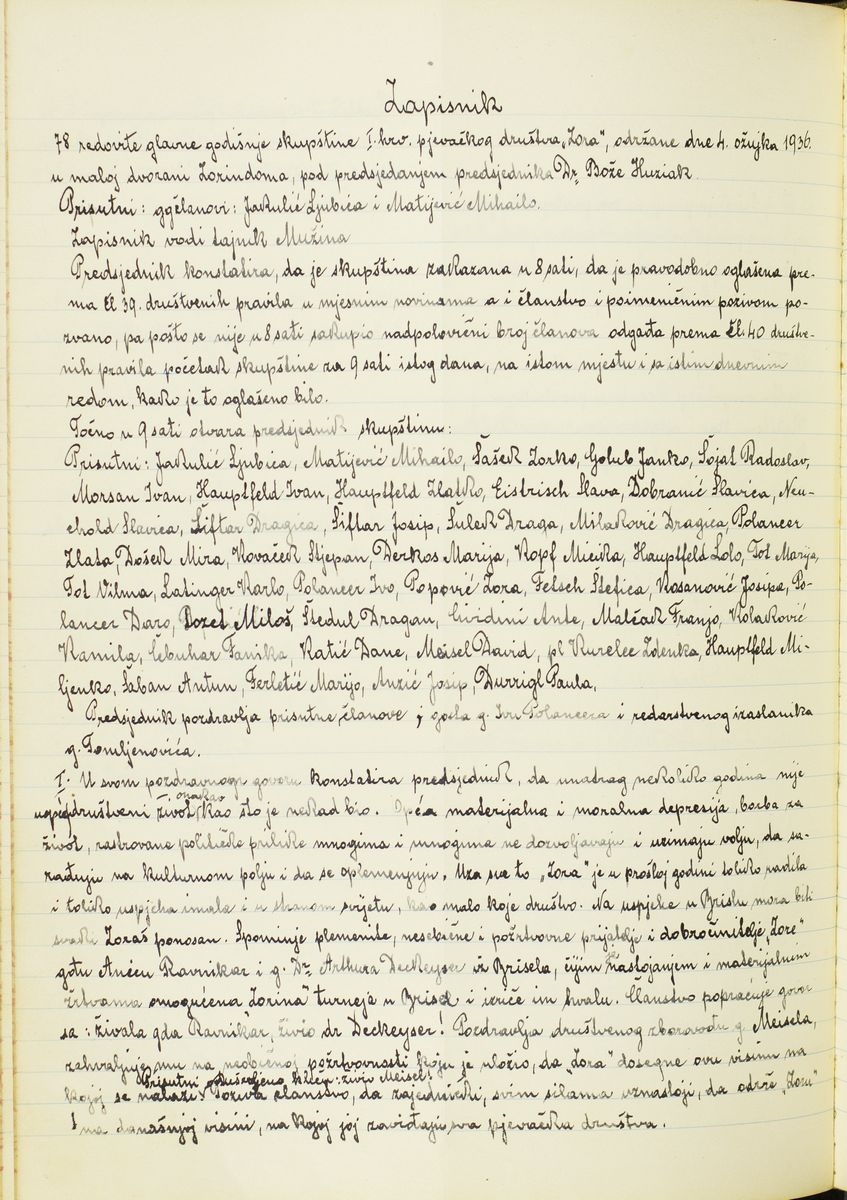 Zapisnik
78 redovite glavne godišnje skupštine I. hrv. pjevačkog društva „Zora", održane dne 4. ožujka 1936.
u maloj dvorani Zorindoma, pod predsjedanjem predsjednika Dr. Bože Huziak
Prisutni: ggčlanovi: Jakulić Ljubica i Matijević Mihailo.
Zapisnik vodi tajnik Mužina
Predsjednik konstatira, da je skupština zakazana u 8 sati, da je pravodobno oglašena pre-
ma čl 39. društvenih pravila u mjesnim novinama a i članstvo i poimeničnim pozivom po-
zvano, pa pošto se nije u 8 sati sakupio nadpolovični broj članova odgađa prema čl. 40 društve-
nih pravila početak skupštine za 9 sati istog dana, na istom mjestu i sa istim dnevnim
redom, kako je to oglašeno bilo.
Točno u 9 sati otvara predsjednik skupštinu:
Prisutni: Jakulić Ljubica, Matijević Mihailo, Šašek Zorko, Golub Janko, Šojat Radoslav,
Morsan Ivan, Hauptfeld Ivan, Hauptfeld Zlatko, Eistrisch Slava, Dobranić Slavica, Neu-
chold Slavica, Šiftar Dragica, Šiftar Josip, Šulek Draga, Milaković Dragica, Polancer
Zlata, Došek Mira, Kovaček Stjepan, Derkos Marija, Kopf Micika, Hauptfeld Lolo, Tot Marija,
Tot Vilma, Latinger Karlo, Polancer Ivo, Popović Zora, Fetsch Štefica, Kosanović Josipa, Po-
lancer Daro, Bozet Miloš, Štedul Dragan, Cividini Ante, Malčak Franjo, Kolaković
Kamila, Čebuhar Fanika, Katić Dane, Meisel David, pl Kurelec Zdenka, Hauptfeld Mi-
ljenko, Šaban Antun, Ferletić Marijo, Anzić Josip, Durrigl Paula,
Predsjednik pozdravlja prisutne članove, gosta g. Ivu Polancera i redarstvenog izaslanika
g. Tomljenovića.
I. U svom pozdravnom govoru konstatira predsjednik, da unatrag nekoliko godina nije
onakav
uopće društveni život kao što je nekad bio. Opća materijalna i moralna depresija, borba za
život, rastrovane političke prilike mnogima i mnogima ne dozvoljavaju i uzimaju volju, da su-
rađuju na kulturnom polju i da se oplemenjuju. Uza sve to „Zora" je u prošloj godini toliko radila
i toliko uspjeha imala i u stranom svijetu, kao malo koje društvo. Na uspjehe u Brislu mora biti
svaki Zoraš ponosan. Spominje plemenite, nesebične i požrtvovne prijatelje i dobročinitelje „Zore"
gđu Anđu Ravnikar i g. Dr. Arthura Deckeyser iz Brisela, čijim je nastojanjem i materijalnim
žrtvama omogućena Zorina" turneja u Brisel i izriče im hvalu. Članstvo popraćuje govor
sa: živala gđa Ravnikar, živio dr Deckeyser! Pozdravlja društvenog zborovođu g. Meisela,
zahvaljuje mu na neobičnoj požrtvovnosti koju je uložio, da „Zora" dosegne ovu visinu na
Prisutni oduševljeno kliču: živio Meisel!
kojoj se nalazi. Poziva članstvo, da zajednički, svim silama uznastoji, da održe „Zoru"
na današnjoj visini, na kojoj joj zavidjaju sva pjevačka društva.